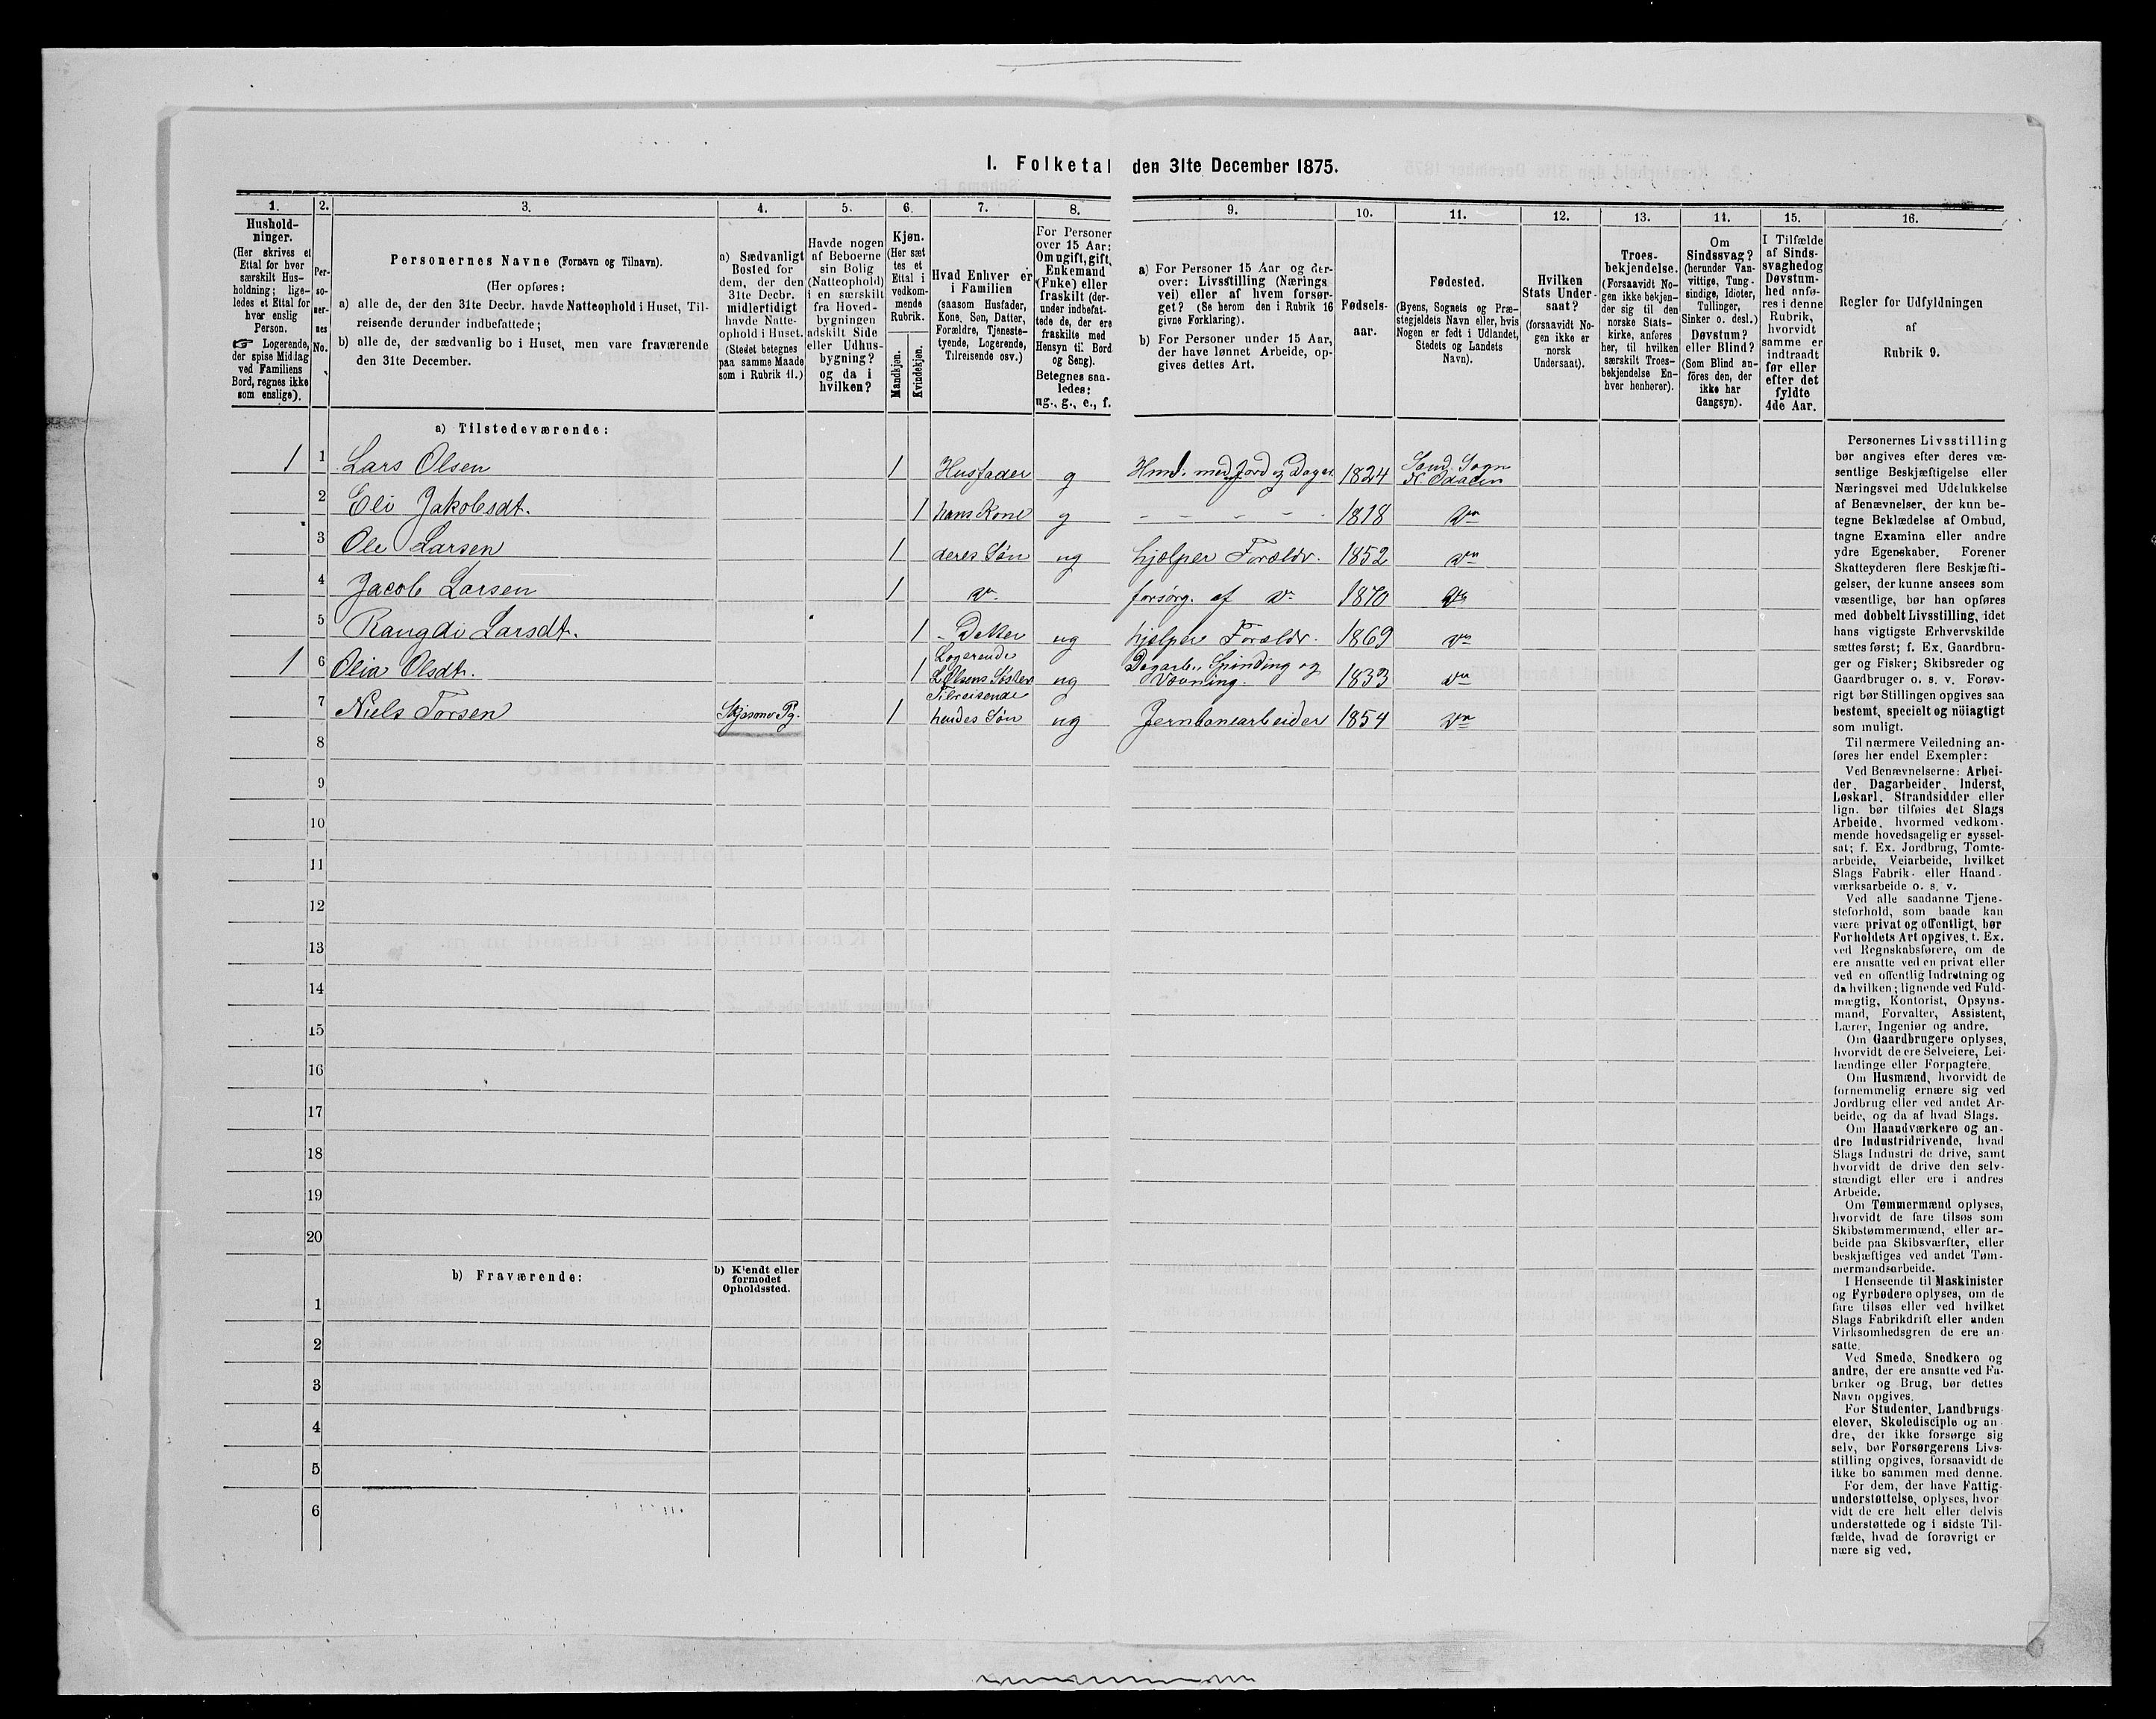 1. Folketal den 31te December 1875.
1.
Hushold-
ninger.
(Her skrives et
Ettal for hver
særskilt Hus-
holdning; lige-
ledes et Ettal for
hver enslig
Person.
☞ Logerende,
der spise Middag
ved Familiens
Bord, regnes ikke
som enslige).
2.
Per-
so-
ner-
nes
No.
3.
Personernes Navne (Fornavn og Tilnavn).
(Her opføres:
a) alle de, der den 31te Decbr. havde Natteophold i Huset, Til-
reisende derunder indbefattede;
b) alle de, der sædvanlig bo i Huset, men vare fraværende
den 31te December.
4.
a) Sædvanligt
Bosted for
dem, der den
31te Decbr.
midlertidigt
havde Natte-
ophold i Huset.
(Stedet betegnes
paa samme Maade
som i Rubrik 11.)
5.
Havde nogen
af Beboerne
sin Bolig
(Natteophold)
i en særskilt
fra Hoved-
bygningen
adskilt Side
eller Udhus-
bygning?
og da i
hvilken?
6.
Kjøn.
(Her sæt
tes et
Ettal i
vedkom-
mende
Rubrik.
Mandkjøn.
Kvindekjøn.
7.
Hvad Enhver er
i Familien
(saasom Husfader,
Kone, Søn, Datter,
Forældre, Tjeneste-
tyende, Logerende,
Tilreisende osv.)
8.
For Personer
over 15 Aar:
Om ugift, gift,
Enkemand
(Enke) eller
fraskilt (der-
under indbefat-
tede de, der ere
fraskilte med
Hensyn til Bord
og Seng).
Betegnes saa-
ledes:
ug., g., e., f.
9.
a) For Personer 15 Aar og der-
over: Livsstilling (Nærings
vei) eller af hvem forsør-
get? (Se herom den i Rubrik 16
givne Forklaring).
b) For Personer under 15 Aar,
der have lønnet Arbeide, op-
gives dettes Art.
10.
Fødsels-
aar.
11.
Fødested.
(Byens, Sognets og Præ-
stegjeldets Navn eller, hvis
Nogen er født i Udlandet,
Stedets og Landets
Navn).
12.
Hvilken
Stats Under-
saat?
(forsaavidt No-
gen ikke er
norsk
Undersaat).
13.
Troes-
bekjendelse.
(Forsaavidt No-
gen ikke bekjen-
der sig til den
norske Stats-
kirke, anføres
her, til hvilken
særskilt Troes-
bekjendelse En-
hver henhører).
14.
Om
Sindssvag?
(herunder Van-
vittige, Tung-
sindige, Idioter,
Tullinger,
Sinker o. desl.)
Døvstum?
eller Blind?
(Som Blind an-
føres den, der
ikke har
Gangsyn).
15.
I Tilfælde
af Sinds-
svaghed og
Døvstum-
hed anfø-
res i denne
Rubrik,
hvorvidt
samme er
indtraadt
før eller
efter det
fyldte
4de Aar.
16.
Regler for Udfyldningen
af
Rubrik 9.
a) Tilstedeværende:
1 1 Lars Olsen 1 Husfader g Husm. med Jord og Dagar. 1824 Sand. Sogn N. Odalen
2 Eli Jakobsdt. 1 hans Kone g - - - - - 1818 do
3 Ole Larsen 1 deres Søn ug hjælper Forældr. 1852 do
4 Jacob Larsen 1 do forsørg. af do 1870 do
5 Rangdi Larsdt. 1 - Datter ug hjælper Forældr. 1869 do
1 6 Olia Olsdt. 1 Logerende L Olsens Søster ug Dagarb., Spinding og Vævning. 1833 do
7 Niels Torsen Skjæsnes Pg. 1 Tilreisende hendes Søn ug Jernbanearbeider 1854 do
8
9
10
11
12
13
14
15
16
17
18
19
20
b) Fraværende:
b) Kjendt eller
formodet
Opholdssted.
1
2
3
4
5
6
Personernes Livsstilling
bør angives efter deres væ-
sentlige Beskjæftigelse eller
Næringsvei med Udelukkelse
af Benævnelser, der kun be-
tegne Beklædelse af Ombud,
tagne Examina eller andre
ydre Egenskaber. Forener
Skatteyderen flere Beskjæfti-
gelser, der kunne ansees som
væsentlige, bør han opføres
med dobbelt Livsstilling, idet
hans vigtigste Erhvervskilde
sættes først; f. Ex. Gaardbru-
ger og Fisker; Skibsreder og
Gaardbruger o. s. v. Forøv-
rigt bør Stillingen opgives saa
bestemt, specielt og nöiagtigt
som muligt.
Til nærmere Veiledning an-
føres her endel Exempler:
Ved Benævnelserne: Arbei-
der, Dagarbeider, Inderst,
Løskarl, Strandsidder eller
lign. bør tilføies det Slags
Arbeide, hvormed vedkom-
mende hovedsagelig er syssel-
sat; f. Ex. Jordbrug, Tomte-
arbeide, Veiarbeide, hvilket
Slags Fabrik- eller Haand-
værksarbeide o. s. v.
Ved alle saadanne Tjene-
steforhold, som baade kan
være privat og offentligt, bør
Forholdets Art opgives, t. Ex.
ved Regnskabsførere, om de
ere ansatte ved en privat eller
ved en offentlig Indretning og
da hvilken; lignende ved Fuld-
mægtig, Kontorist, Opsyns-
mand, Forvalter, Assistent,
Lærer, Ingeniør og andre.
Om Gaardbrugere oplyses,
hvorvidt de ere Selveiere, Lei-
lændinge eller Forpagtere.
Om Husmænd, hvorvidt de
fornemmelig ernære sig ved
Jordbrug eller ved andet Ar-
beide, og da af hvad Slags.
Om Haandværkere og an-
dre Industridrivende, hvad
Slags Industri de drive, samt
hvorvidt de drive den selv-
stændigt eller ere i andres
Arbeide.
Om Tømmermænd oplyses,
hvorvidt de fare tilsøs som
Skibstømmermænd, eller ar-
beide paa Skibsværfter, eller
beskjæftiges ved andet Tøm-
mermandsarbeide.
I Henseende til Maskinister
og Fyrbødere oplyses, om de
fare tilsøs eller ved hvilket
Slags Fabrikdrift eller anden
Virksomhedsgren de ere an-
satte.
Ved Smede, Snedkere og
andre, der ere ansatte ved Fa-
briker og Brug, bør dettes
Navn opgives.
For Studenter, Landbrugs
elever, Skoledisciple og an-
dre, der ikke forsørge sig
selv, bør Forsørgerens Livs-
stilling opgives, forsaavidt de
ikke bo sammen med denne.
For dem, der have Fattig-
understøttelse, oplyses, hvor
vidt de ere helt eller delvis
understøttede og i sidste Til-
fælde, hvad de forøvrigt er
nære sig ved.